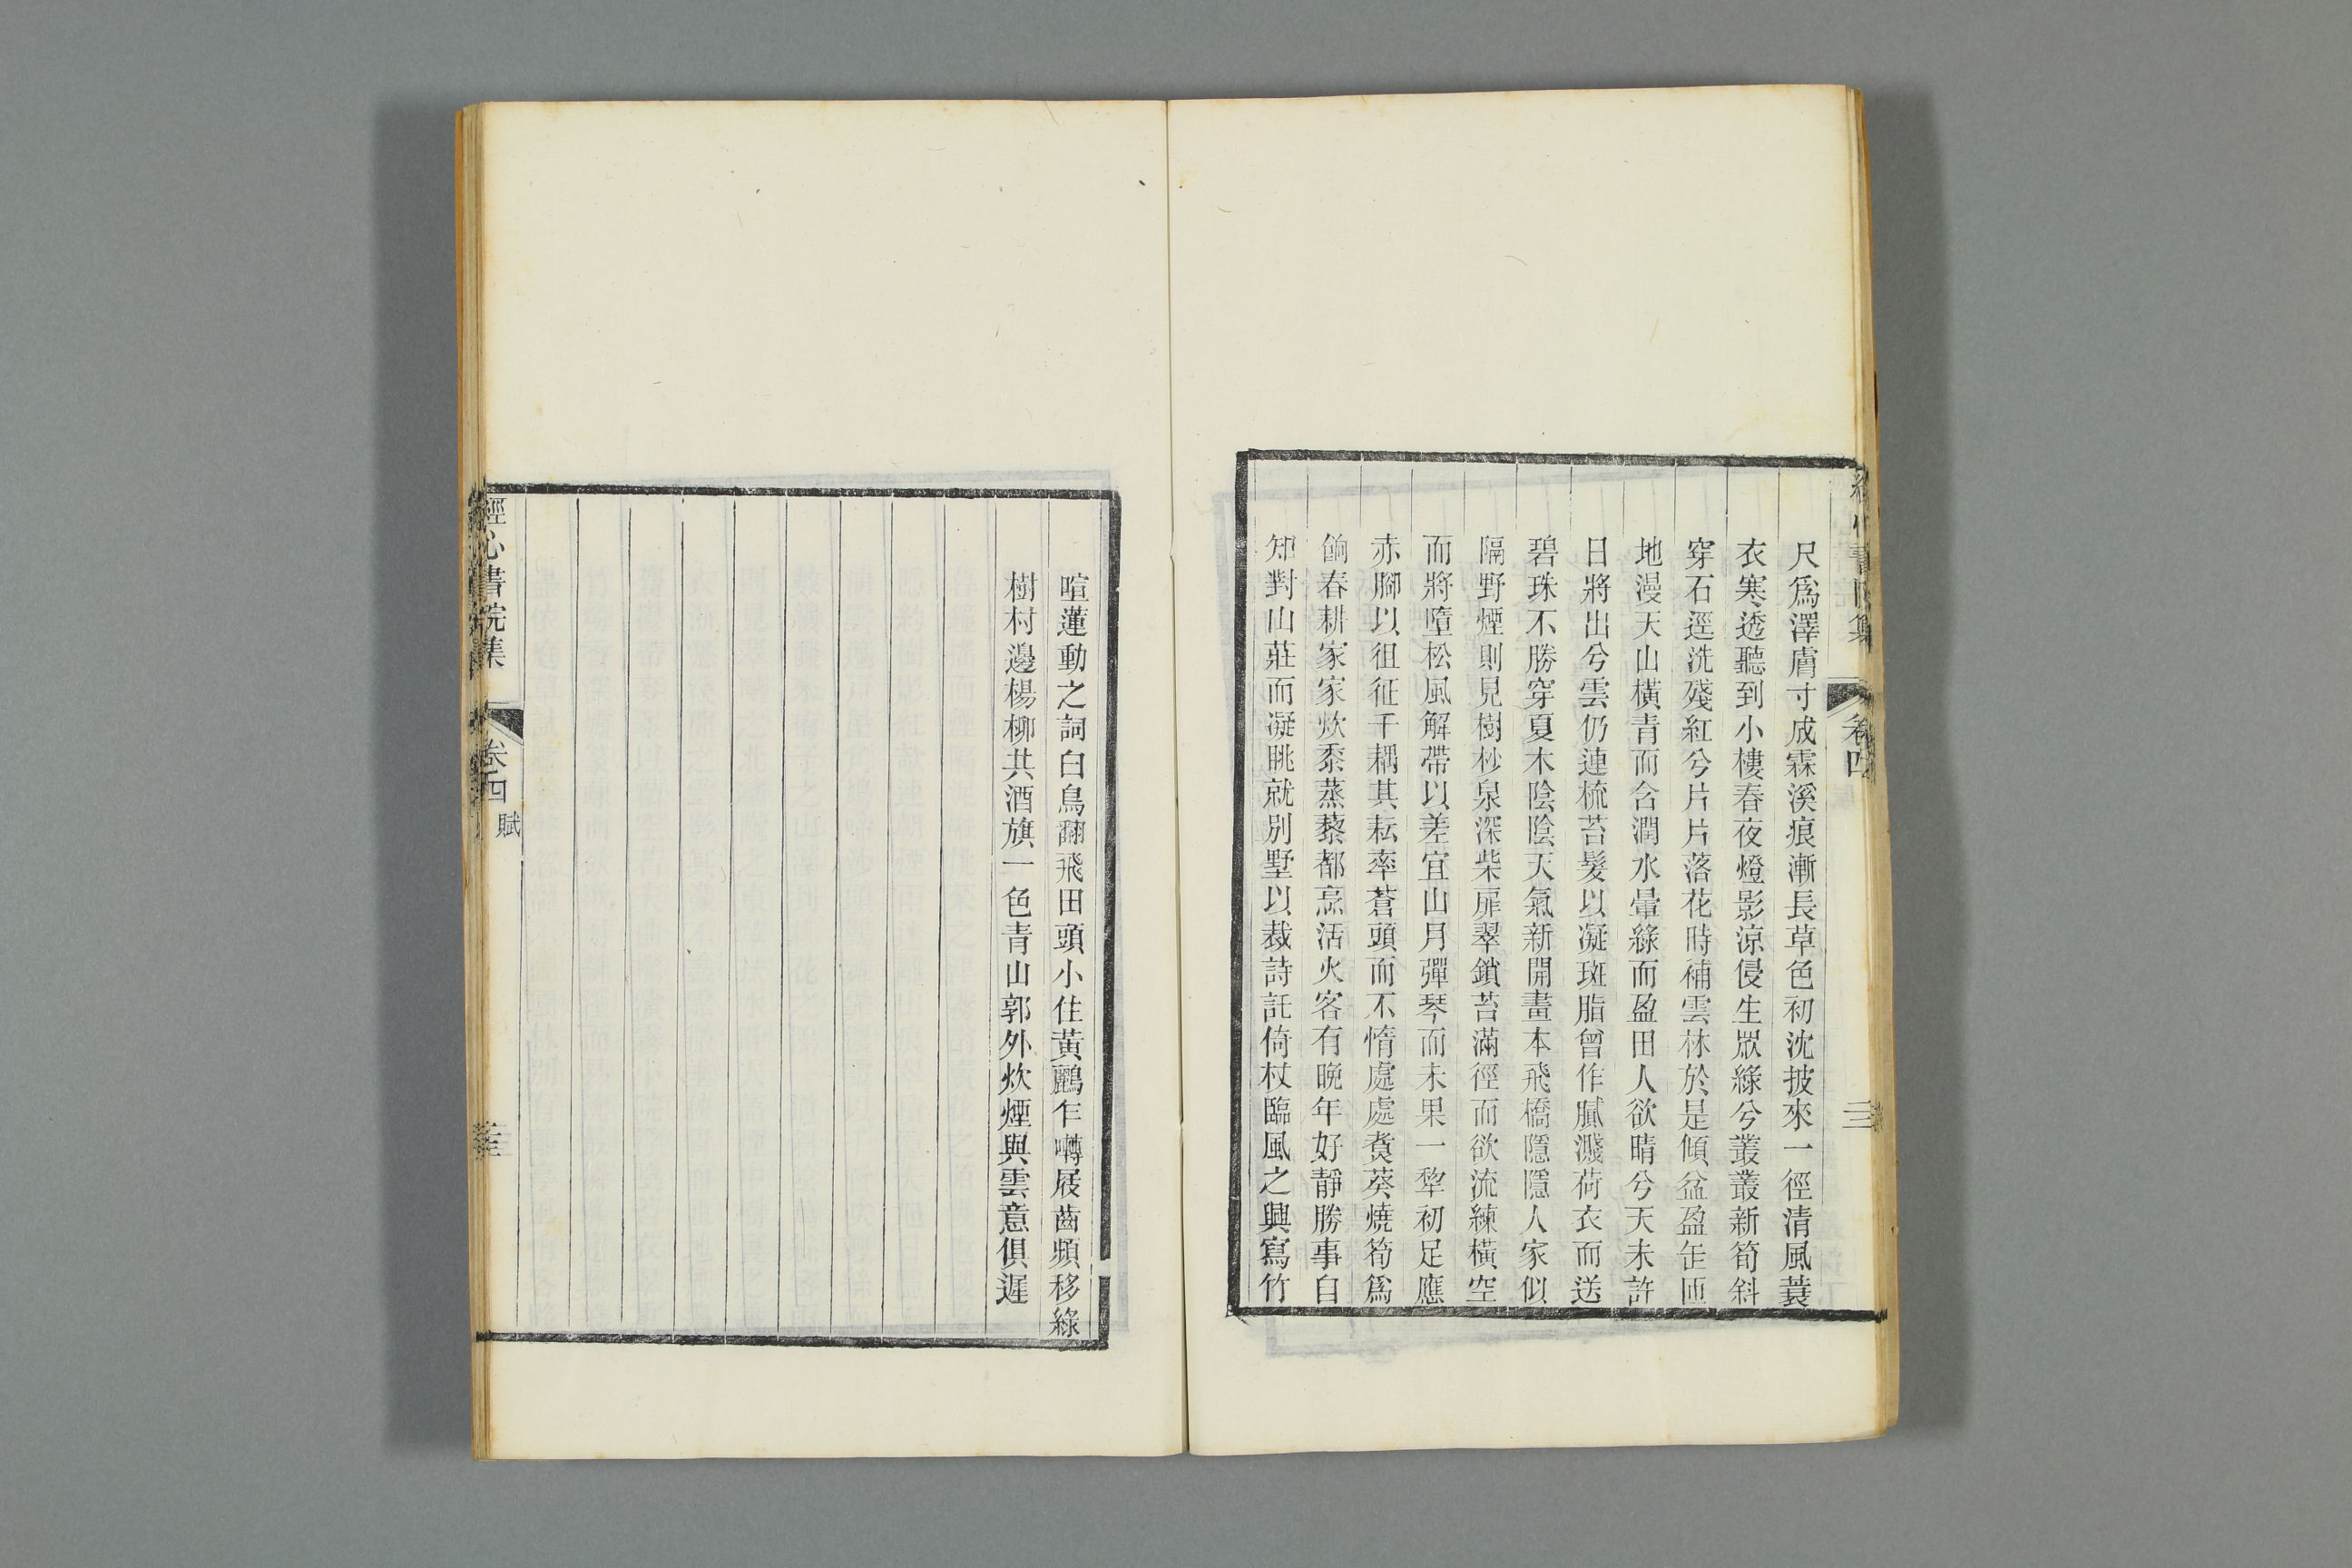 尺爲澤膚寸成霖溪痕漸長草色初沈披來一徑清風蓑
衣寒透聽到小樓春夜燈影涼侵生眾綠兮叢叢新筍斜
穿石逕洗殘紅兮片片落花時補雲林於是傾盆盈缶匝
地漫天山橫青而含潤水暈綠而盈田人欲晴兮天未許
日將出兮雲仍連梳苔髮以凝斑脂曾作膩濺荷衣而送
碧珠不勝穿夏木陰陰天氣新開畫本飛橋隱隱人家似
隔野煙則見樹杪泉深柴扉翠鎖苔滿徑而欲流練橫空
而將墮松風解帶以差宜山月彈琴而未果一犂初足應
赤腳以徂征千耦其耘率蒼頭而不惰處處賷葵燒筍爲
餉春耕家家炊黍蒸藜都烹活火客有晚年好靜勝事自
知對山莊而凝眺就別墅以裁詩託倚杖臨風之興寫竹
喧蓮動之詞白鳥翻飛田頭小住黃鸝乍囀屐齒頻移綠
樹村邊楊柳共酒旗一色青山郭外炊煙與雲意俱遲
經心書院集
卷四
賦